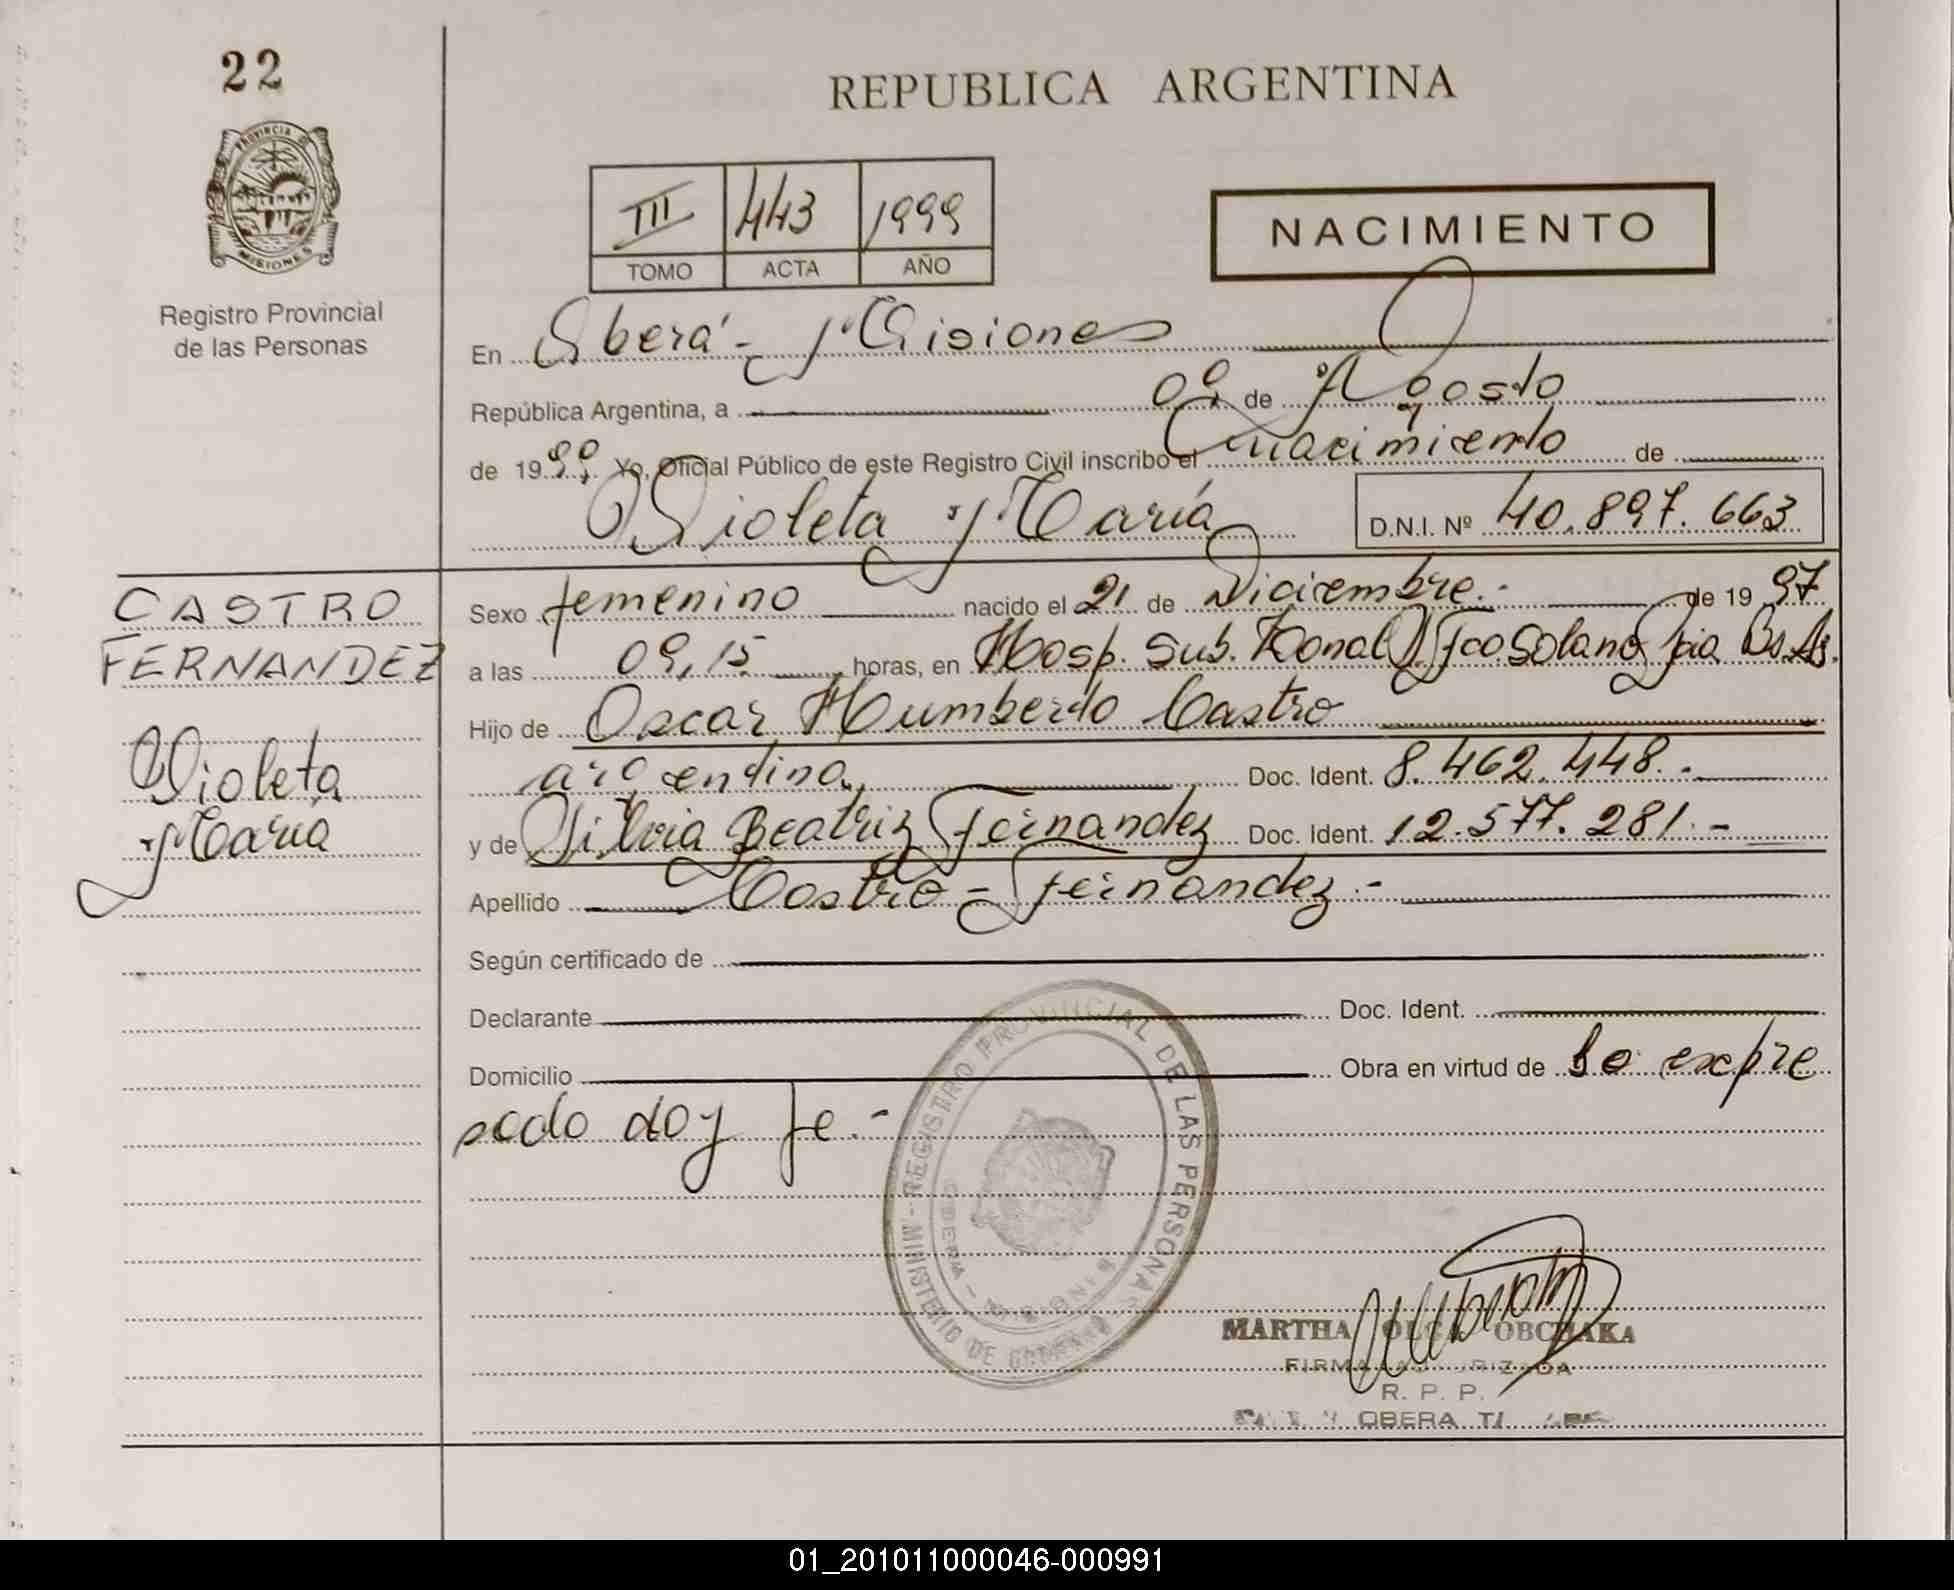 22
REPUBLICA ARGENTINA
PROVINCIA DE
MISIONES
Registro Provincial
de las Personas
III 443 1999
TOMO ACTA AÑO
NACIMIENTO
En Oberá - Misiones
República Argentina, a 09 de Agosto
de 1999. Yo, Oficial Público de este Registro Civil inscribo el nacimiento de
Violeta María D.N.I. Nº 40.897.663
CASTRO
FERNANDEZ
Violeta
María
Sexo femenino nacido el 21 de Diciembre.- de 1997
a las 09,15 horas, en Hosp. Sub. Zonal Fco Solano Pcia Bs. As.
Hijo de Oscar Humberto Castro
argentina Doc. Ident. 8.462.448.-
y de Silvia Beatriz Fernandez Doc. Ident. 12.577.281.-
Apellido Castro - Fernandez.-
Según certificado de
Declarante Doc. Ident.
Domicilio Obra en virtud de lo expre
sado doy fe.-
REGISTRO PROVINCIAL DE LAS PERSONAS - MINISTERIO DE
MARTHA OLGA OBCHAKA
FIRMA AUTORIZADA
R. P. P.
OBERA
01_201011000046-000991